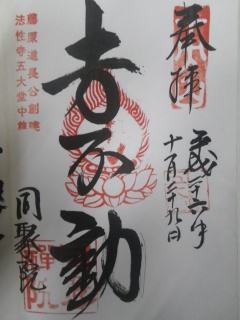 奉拝
平成二十六年
十一月二十九日
不動
藤原道長公創建
法性寺五大堂中尊
同聚院